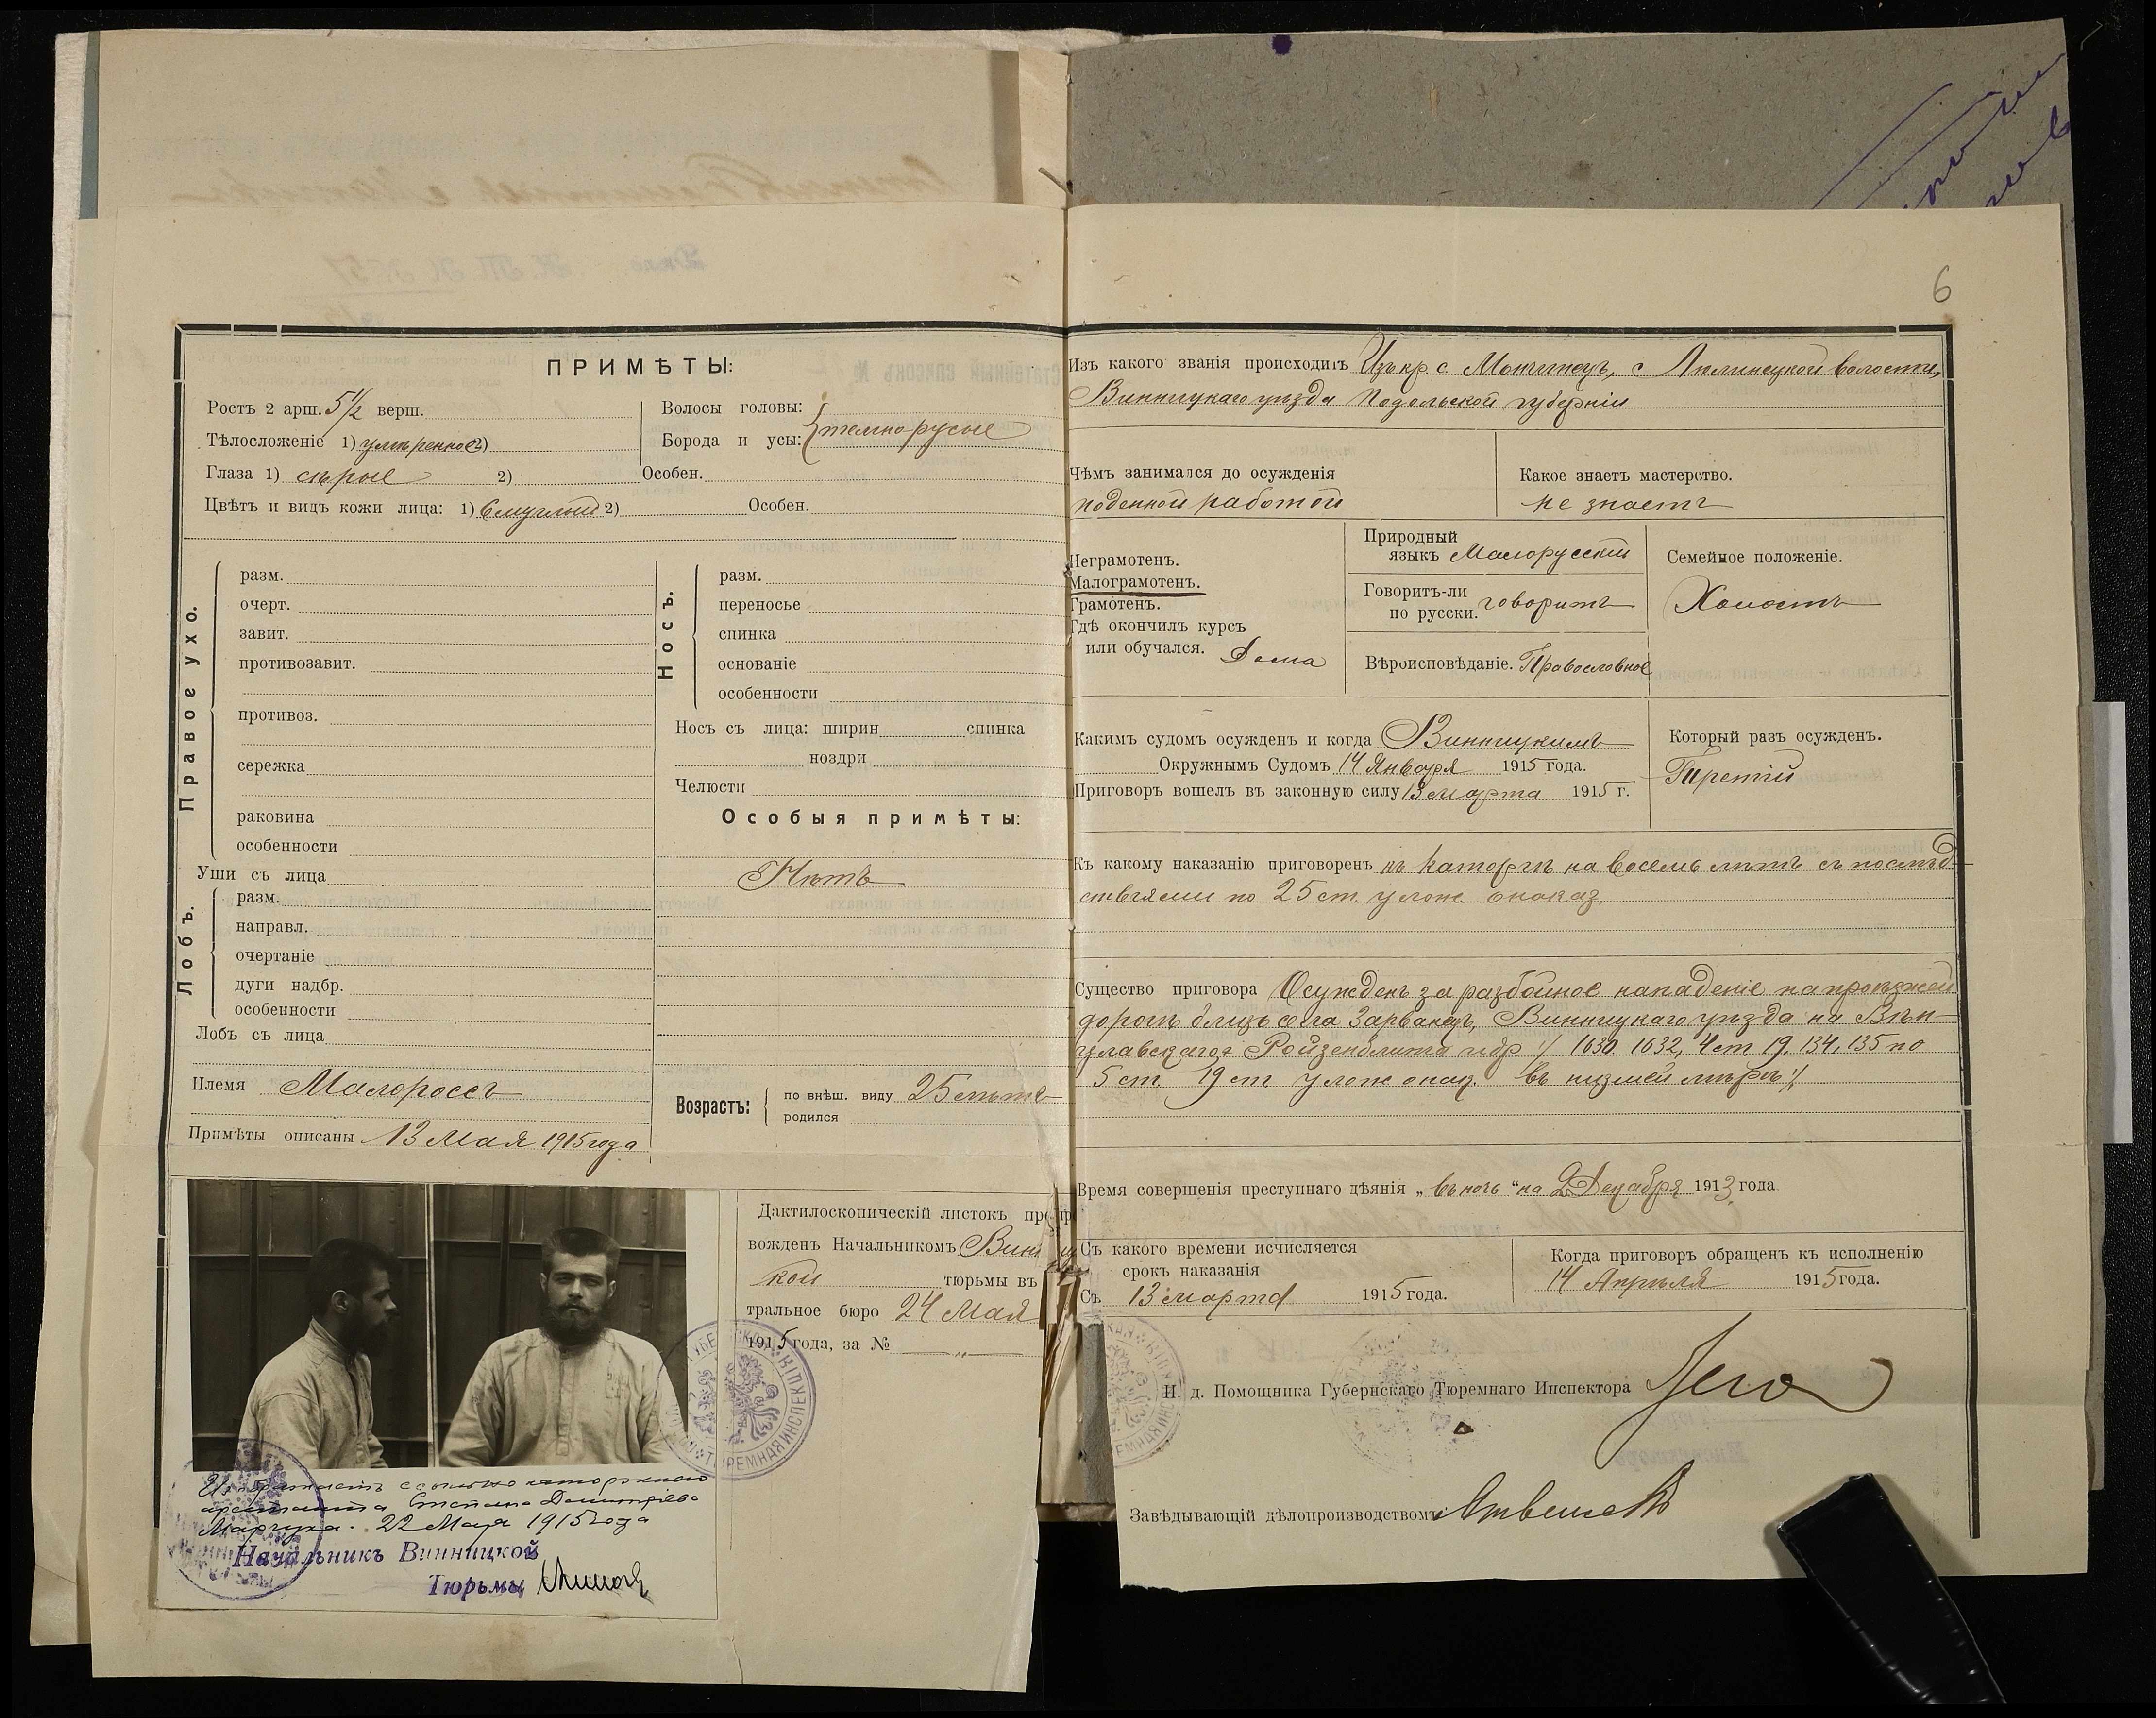 6
ПРИМѢТЫ:
Ростъ 2 арш. 5½ верш.
Тѣлосложеніе 1) умѣренное 2)
Глаза 1) сѣрые 2) Особен.
Цвѣтъ и видъ кожи лица: 1) Смуглый 2) Особен.
Волосы головы:
Борода и усы: темнорусые
Правое ухо.
разм.
очерт.
завит.
противозавит.
противоз.
сережка
раковина
особенности
Уши съ лица
Лобъ.
разм.
направл.
очертаніе
дуги надбр.
особенности
Лобъ съ лица
Племя Малороссъ
Примѣты описаны 13 Мая 1915 года
Носъ.
разм.
переносье
спинка
основаніе
особенности
Носъ съ лица: ширин спинка
ноздри
Челюсти
Особыя примѣты:
Нѣтъ
Возрастъ:
по внѣш. виду 25 лѣтъ
родился
Дактилоскопическій листокъ
вожденъ Начальникомъ
кой тюрьмы въ
тральное бюро 24 Мая
1915 года, за № „
ссыльно каторжнаго
арестанта Степана Дмитріева
Марчука. 22 Мая 1915 года
Начальникъ Винницкой
Тюрьмы
Изъ какого званія происходитъ Изъ кр с. волости,
Винницкаго уѣзда Подольской губерніи
Чѣмъ занимался до осужденія
поденной работой
Какое знаетъ мастерство.
не знаетъ
Неграмотенъ.
Малограмотенъ.
Грамотенъ.
Гдѣ окончилъ курсъ
или обучался. Дома
Природный
языкъ Малорусскій
Говоритъ-ли
по русски. говоритъ
Вѣроисповѣданіе. Православное
Семейное положеніе.
Холостъ
Какимъ судомъ осужденъ и когда Винницкимъ
Окружнымъ Судомъ 14 Января 1915 года.
Приговоръ вошелъ въ законную силу 13 марта 1915 г.
Который разъ осужденъ.
Третій
Къ какому наказанію приговоренъ къ каторгѣ на восемь лѣтъ съ послѣд
ствіями по 25 ст улож о наказ.
Существо приговора Осужденъ за разбойное нападеніе на проѣзжей
дорогѣ близь села Зарванецъ, Винницкаго уѣзда на
Ройзенблита и др /: 1630 1632, 4 ст 19, 134, 135 по
5 ст. 19 ст улож о наз. въ низшей мѣрѣ :/
Время совершенія преступнаго дѣянія „ въ ночь “ на 2 Декабря 1913 года
Съ какого времени исчисляется
срокъ наказанія
Съ 13 марта 1915 года.
Когда приговоръ обращенъ къ исполненію
14 Апрѣля 1915 года.
И. д. Помощника Губернскаго Тюремнаго Инспектора
Завѣдывающій дѣлопроизводствомъ